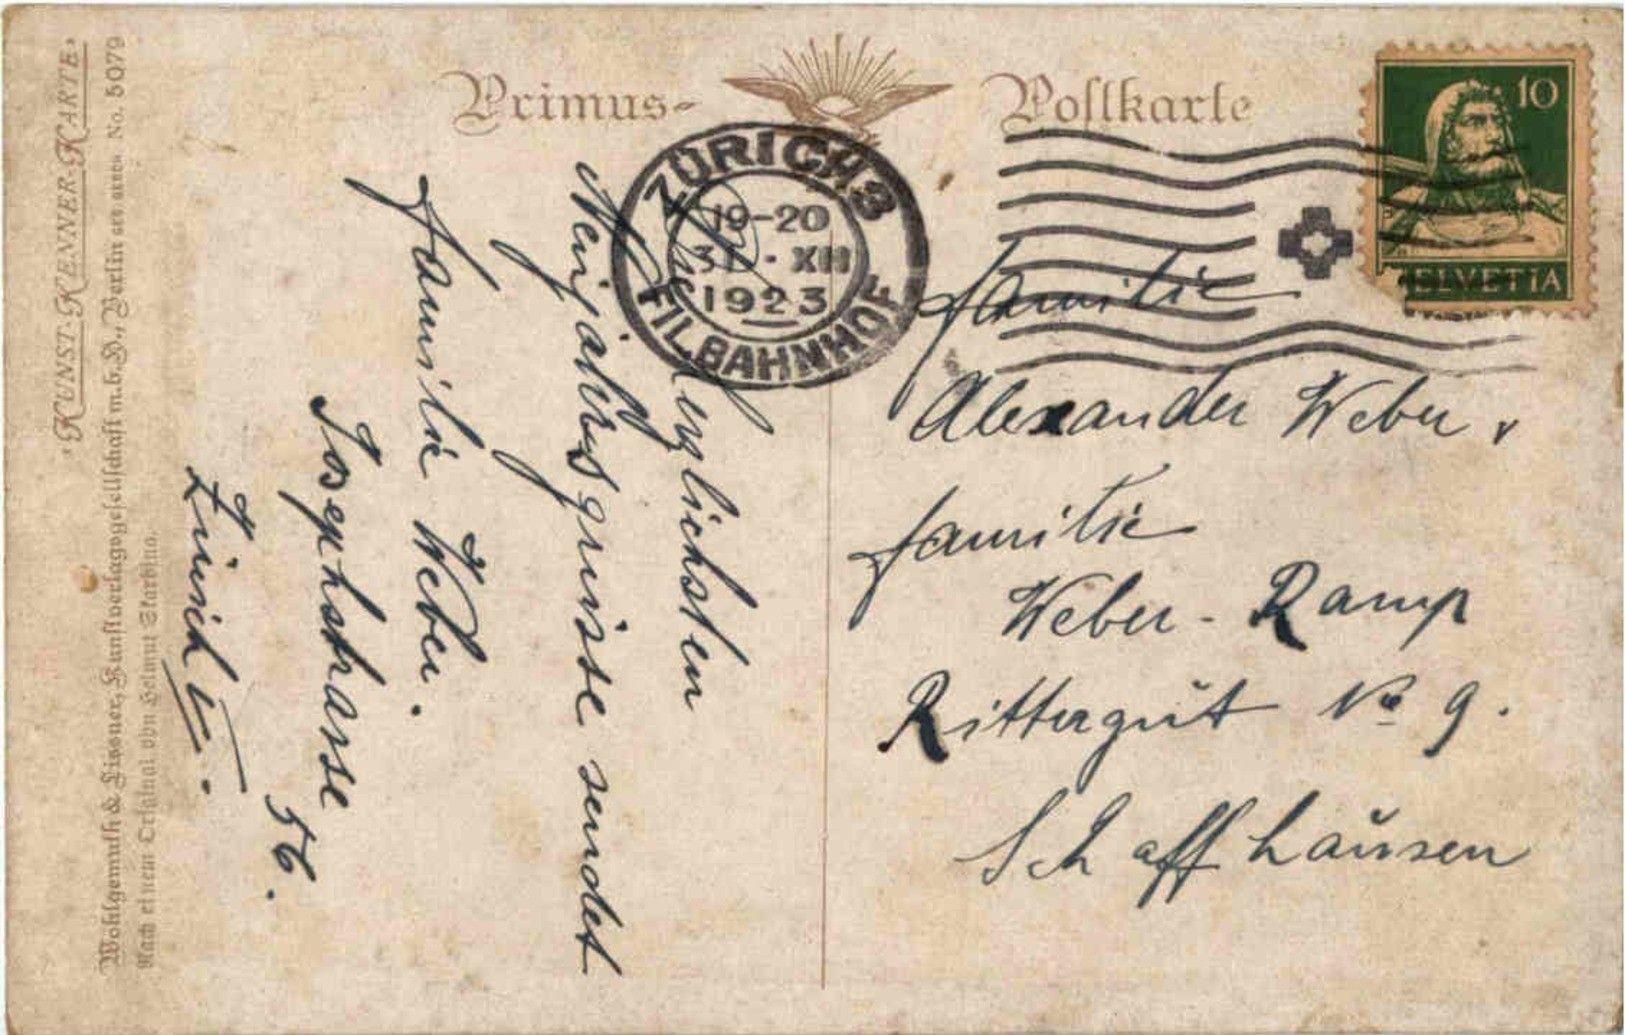 Primus-Postkarte
10
HELVETIA
ZÜRICH 3
19-20
31.XII
1923
FIL. BAHNHOF
Familie
Alexander Weber
Familie
Weber-Ramp
Rittergŭt No 9.
Schaffhaŭsen
Die herzlichsten
Neujahrsgrüsse sendet
Familie Weber.
Josephstrasse
56.
Zürich V.
"KUNST-KENNER-KARTE"
Wohlgemuth & Lissner, Kunstverlagsgesellschaft m.b.H., Berlin No. 5079
Nach einem Original von Helmut Skarbina.